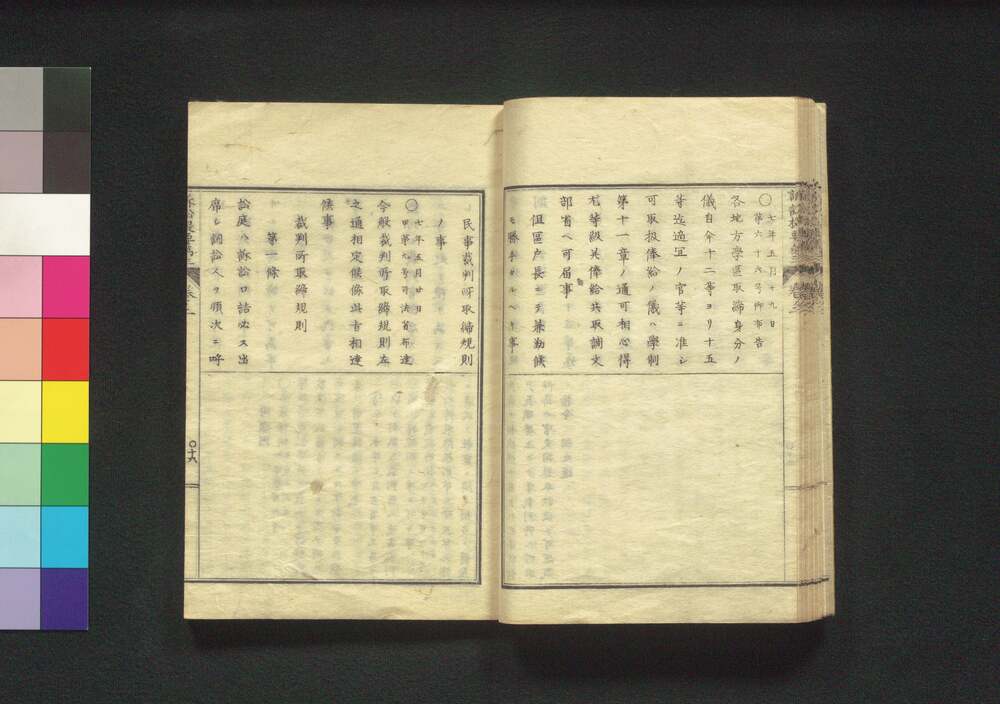 〇七年五月十九日
第六十六号御布告
各地方学区取締身分ノ
儀自今十二等ヨリ十五
等迄適宜ノ官等ニ准シ
可取扱俸給ノ儀ハ學制
第十一章ノ通可相心得
尤等級共俸給共取調文
部省ヘ可届事
但區戸長ニテ兼勤候
モ勝手タルヘキ事
民事裁判所取締規則
ノ事
〇七年五月廿日
甲第九号司法省布達
今般裁判所取締規則左
之通相定候條此旨相達
候事
裁判所取締規則
第一條
訟庭ハ訴訟ロ詰
席シ訴訟人ヲ順次ニ呼
〇十六